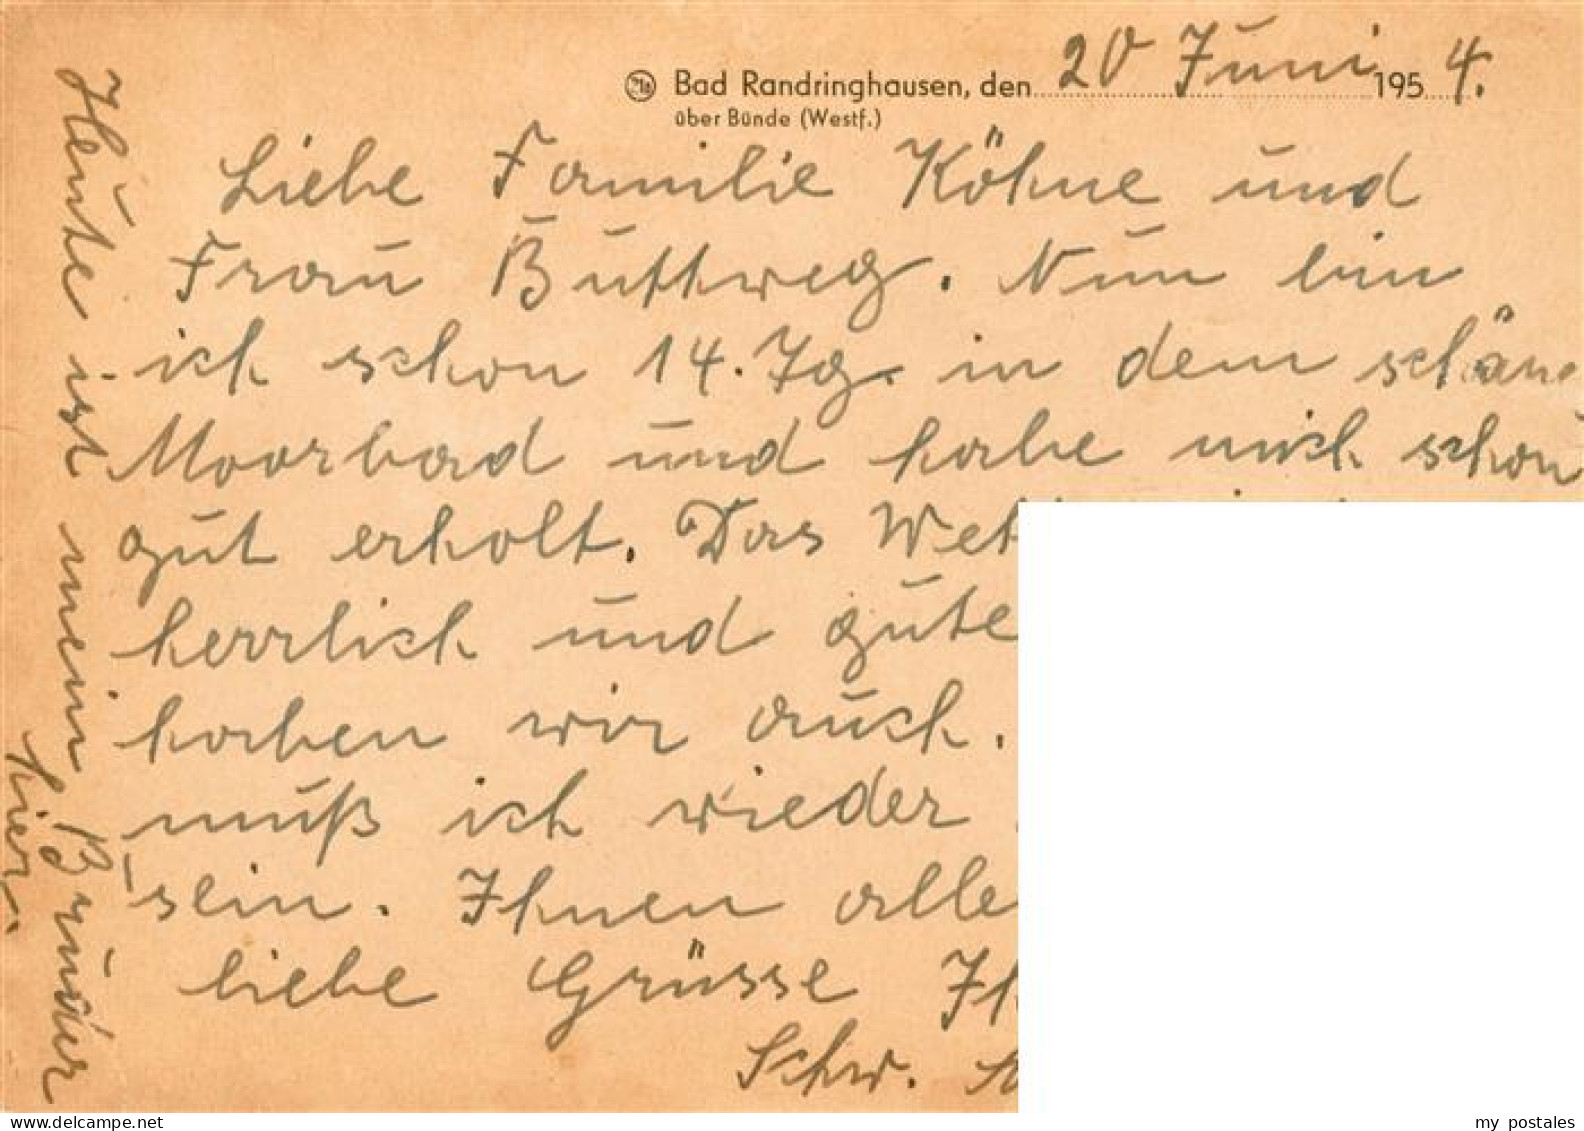 Bad Randringhausen, den 20 Juni 1954.
über Bünde (Westf.)
Liebe Familie Köhne und
Frau Buttweg. Nun bin
ich schon 14. Tg. in dem schön
Moorbad und habe mich schon
gut erholt. Das Wet
herrlich und gute
haben wir auch.
muß ich wieder
sein. Ihnen alle
liebe Grüsse Ih
Schw.
Heute ist mein Bruder
hier.
delcampe.net
my_postales